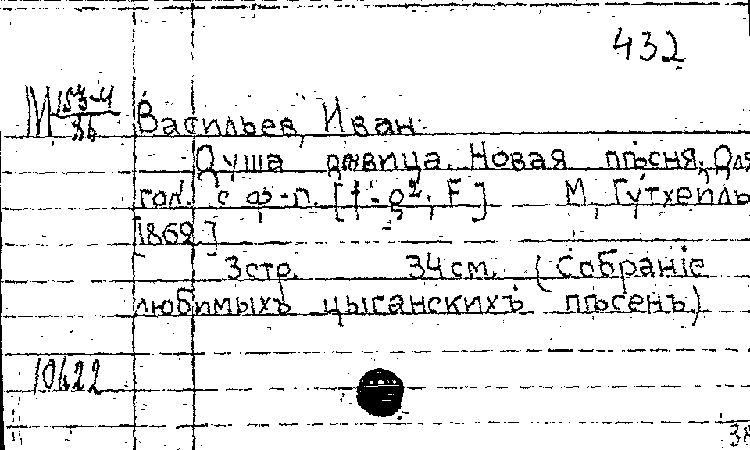 432
М 153-4/86
Васильев, Иван.
Душа девица. Новая пѣсня, Для
гол. с ф-п. [f¹-g², F] М, Гутхейль
[1862]
3 стр. 34 см. (Собранiе
любимыхъ цыганскихъ пѣсенъ)
10422
38